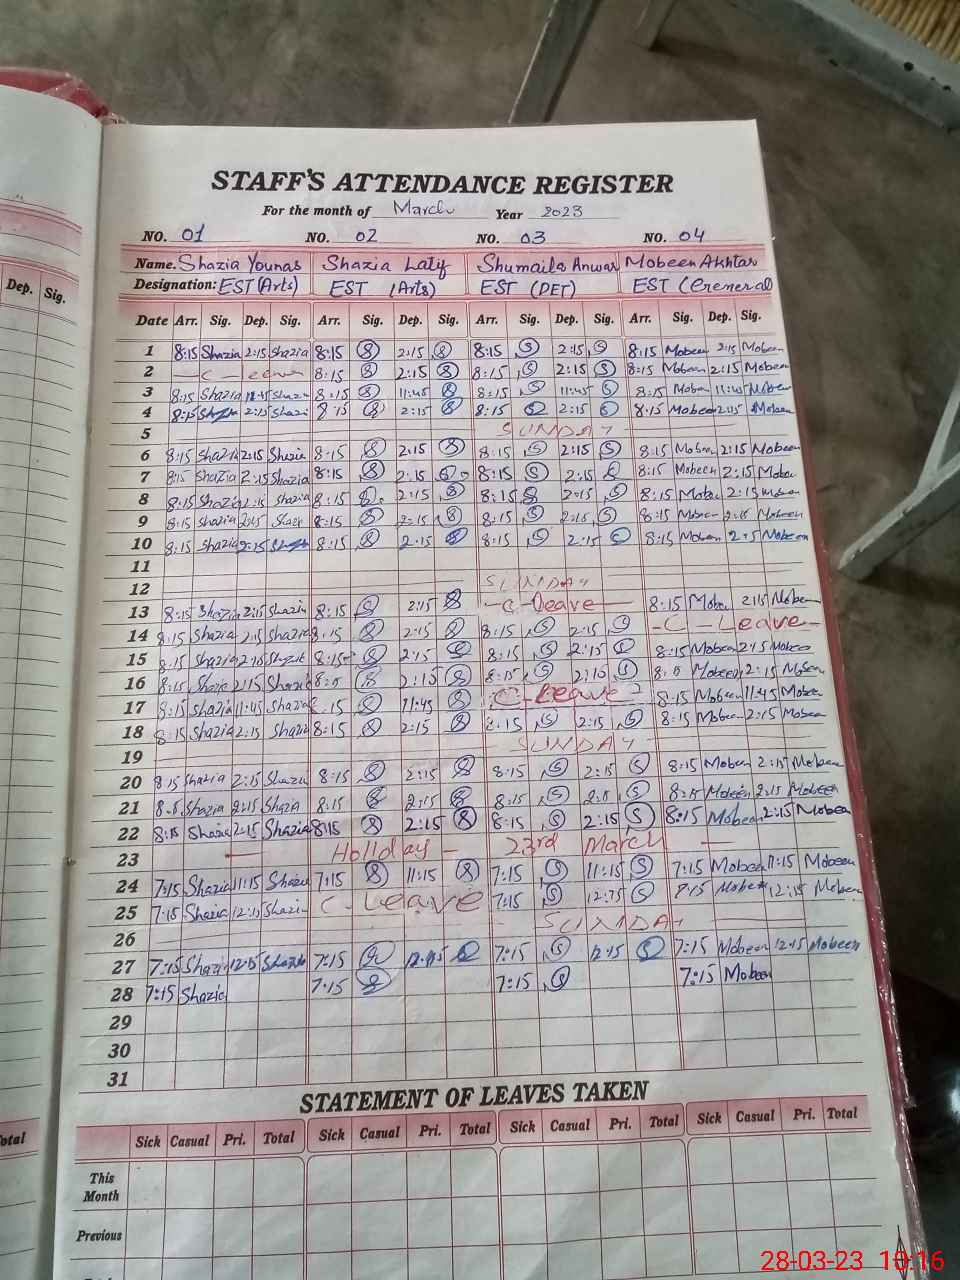 STAFF'S ATTENDANCE REGISTER
For the month of March Year 2023
NO. 01 NO. 02 NO. 03 NO. 04
Name. Shazia Younas Shazia Latif Shumaila Anwar Mobeen Akhtar
Designation: EST (Arts) EST (Arts) EST (PET) EST (General)
Dep. Sig. Date Arr. Sig. Dep. Sig. Arr. Sig. Dep. Sig. Arr. Sig. Dep. Sig. Arr. Sig. Dep. Sig.
1 8:15 Shazia 2:15 Shazia 8:15 2:15 8:15 S 2:15 S 8:15 Mobeen 2:15 Mobeen
2 - C - Leave 8:15 2:15 8:15 S 2:15 S 8:15 Mobeen 2:15 Mobeen
3 8:15 Shazia 8:15 11:45 8:15 S 11:45 S 8:15 11:45 Mobeen
4 8:15 2:15 8:15 2:15 8:15 2:15 8:15 Mobeen 2:15 Mobeen
5 SUNDAY
6 8:15 Shazia 2:15 Shazia 8:15 2:15 8:15 S 2:15 S 8:15 Mobeen 2:15 Mobeen
7 8:15 Shazia 2:15 Shazia 8:15 2:15 8:15 S 2:15 8:15 Mobeen 2:15
8 8:15 Shazia Shazia 8:15 2:15 8:15 2:15 S 8:15 2:15 Mobeen
9 8:15 Shazia 2:15 8:15 2:15 8:15 S 2:15 S 8:15 Mobeen 2:15 Mobeen
10 8:15 Shazia 2:15 8:15 2:15 8:15 S 2:15 8:15 Mobeen Mobeen
11
12 SUNDAY
13 8:15 Shazia 2:15 8:15 2:15 - C - Leave - 8:15 2:15 Mobeen
14 8:15 Shazia 2:15 Shazia 2:15 8:15 S 2:15 S - C - Leave -
15 8:15 Shazia 8:15 2:15 8:15 S 2:15 8:15 Mobeen 2:15
16 8:15 2:15 2:15 8:15 S S Mobeen 2:15 Mobeen
17 8:15 Shazia 11:45 Shazia 11:45 C - Leave 8:15 Mobeen 11:45
18 8:15 Shazia 2:15 8:15 2:15 8:15 S 2:15 S 8:15 Mobeen 2:15
19 SUNDAY
20 8:15 Shazia 2:15 8:15 2:15 8:15 S 2:15 S 8:15 Mobeen 2:15 Mobeen
21 Shazia 2:15 Shazia 8:15 2:15 8:15 S S Mobeen 2:15 Mobeen
22 8:15 2:15 Shazia 8:15 2:15 8:15 S 2:15 S 8:15 Mobeen 2:15 Mobeen
23 - Holiday - 23rd March -
24 7:15 Shazia 11:15 7:15 11:15 7:15 S 11:15 S 7:15 Mobeen 11:15 Mobeen
25 7:15 Shazia C - Leave 7:15 S S Mobeen 12:15 Mobeen
26 SUNDAY
27 7:15 Shazia 12:15 Shazia 7:15 12:15 7:15 S 12:15 7:15 Mobeen 12:15 Mobeen
28 7:15 Shazia 7:15 7:15 S 7:15 Mobeen
29
30
31
STATEMENT OF LEAVES TAKEN
Sick Casual Pri. Total Sick Casual Pri. Total Sick Casual Pri. Total Sick Casual Pri. Total
This
Month
Previous
28-03-23 10:16